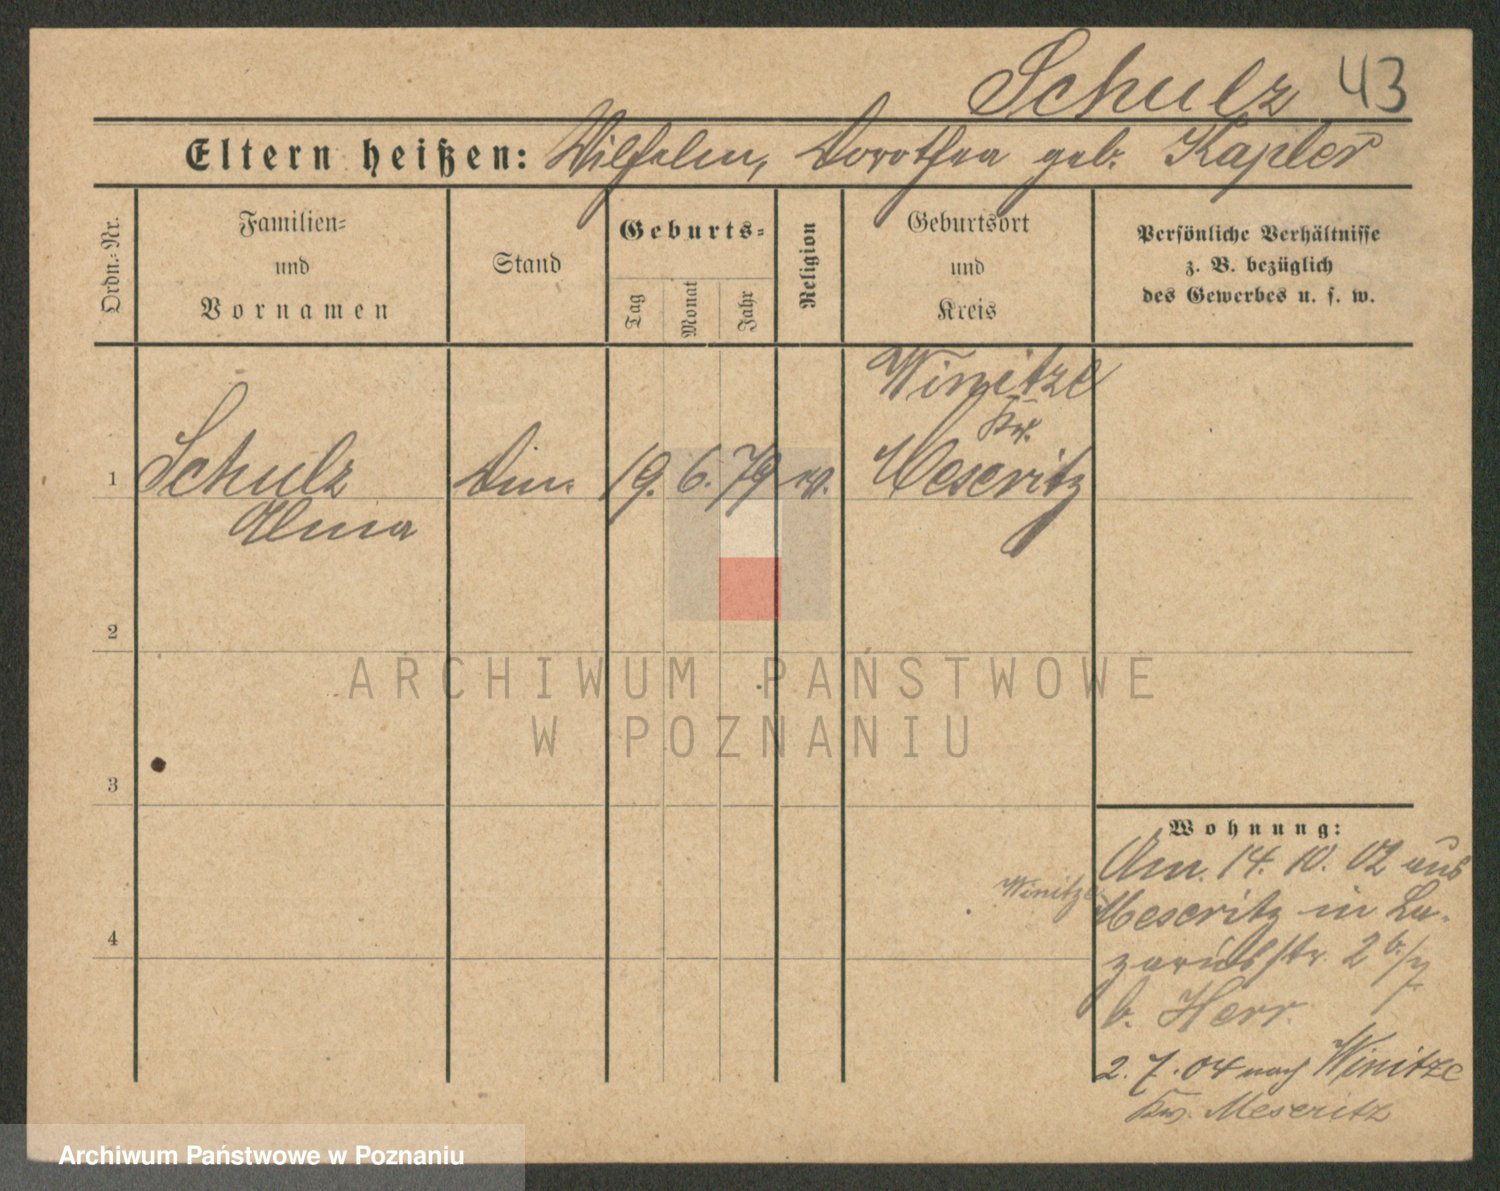 Schulz 43
Eltern heißen: Wilhelm, Dorothea geb. Kapler
Ordn.-Nr.
Familien-
und
Vornamen
Stand
Geburts-
Tag
Monat
Jahr
Religion
Geburtsort
und
Kreis
Persönliche Verhältnisse
z. B. bezüglich
des Gewerbes u. s. w.
Winitze
Kr.
1 Schulz Din. 19. 6. 79 ev. Meseritz
Alma
2
ARCHIWUM PAŃSTWOWE
W POZNANIU
3
Wohnung:
Am. 14. 10. 02 aus
Winitze
Meseritz in La-
4
zarusstr. 2b/
b. Herr.
2. 7. 04 nach Winitze
Kr. Meseritz
Archiwum Państwowe w Poznaniu